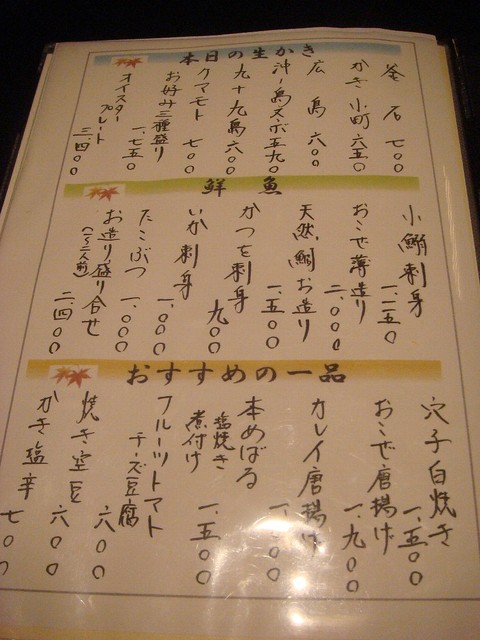 本日の生かき
釜石 七〇〇
かき小町 六五〇
広島 六〇〇
沖ノ島
九十九島 六〇〇
クマモト 七〇〇
お好み三種盛り 一、七五〇
オイスタープレート 三、四〇〇
鮮魚
小鰯刺身 一、二五〇
おこぜ薄造り 二、〇〇〇
天然鯛お造り 一、五〇〇
かつを刺身 九〇〇
いか刺身 一、〇〇〇
たこぶつ 一、〇〇〇
お造り盛り合せ
(一〜二人前) 二、四〇〇
おすすめの一品
穴子白焼き 一、五〇〇
おこぜ唐揚げ 一、九〇〇
カレイ唐揚げ
本めばる
塩焼き
煮付け 一、五〇〇
フルーツトマト
チーズ豆腐 六〇〇
焼き空豆 六〇〇
かき塩辛 七〇〇